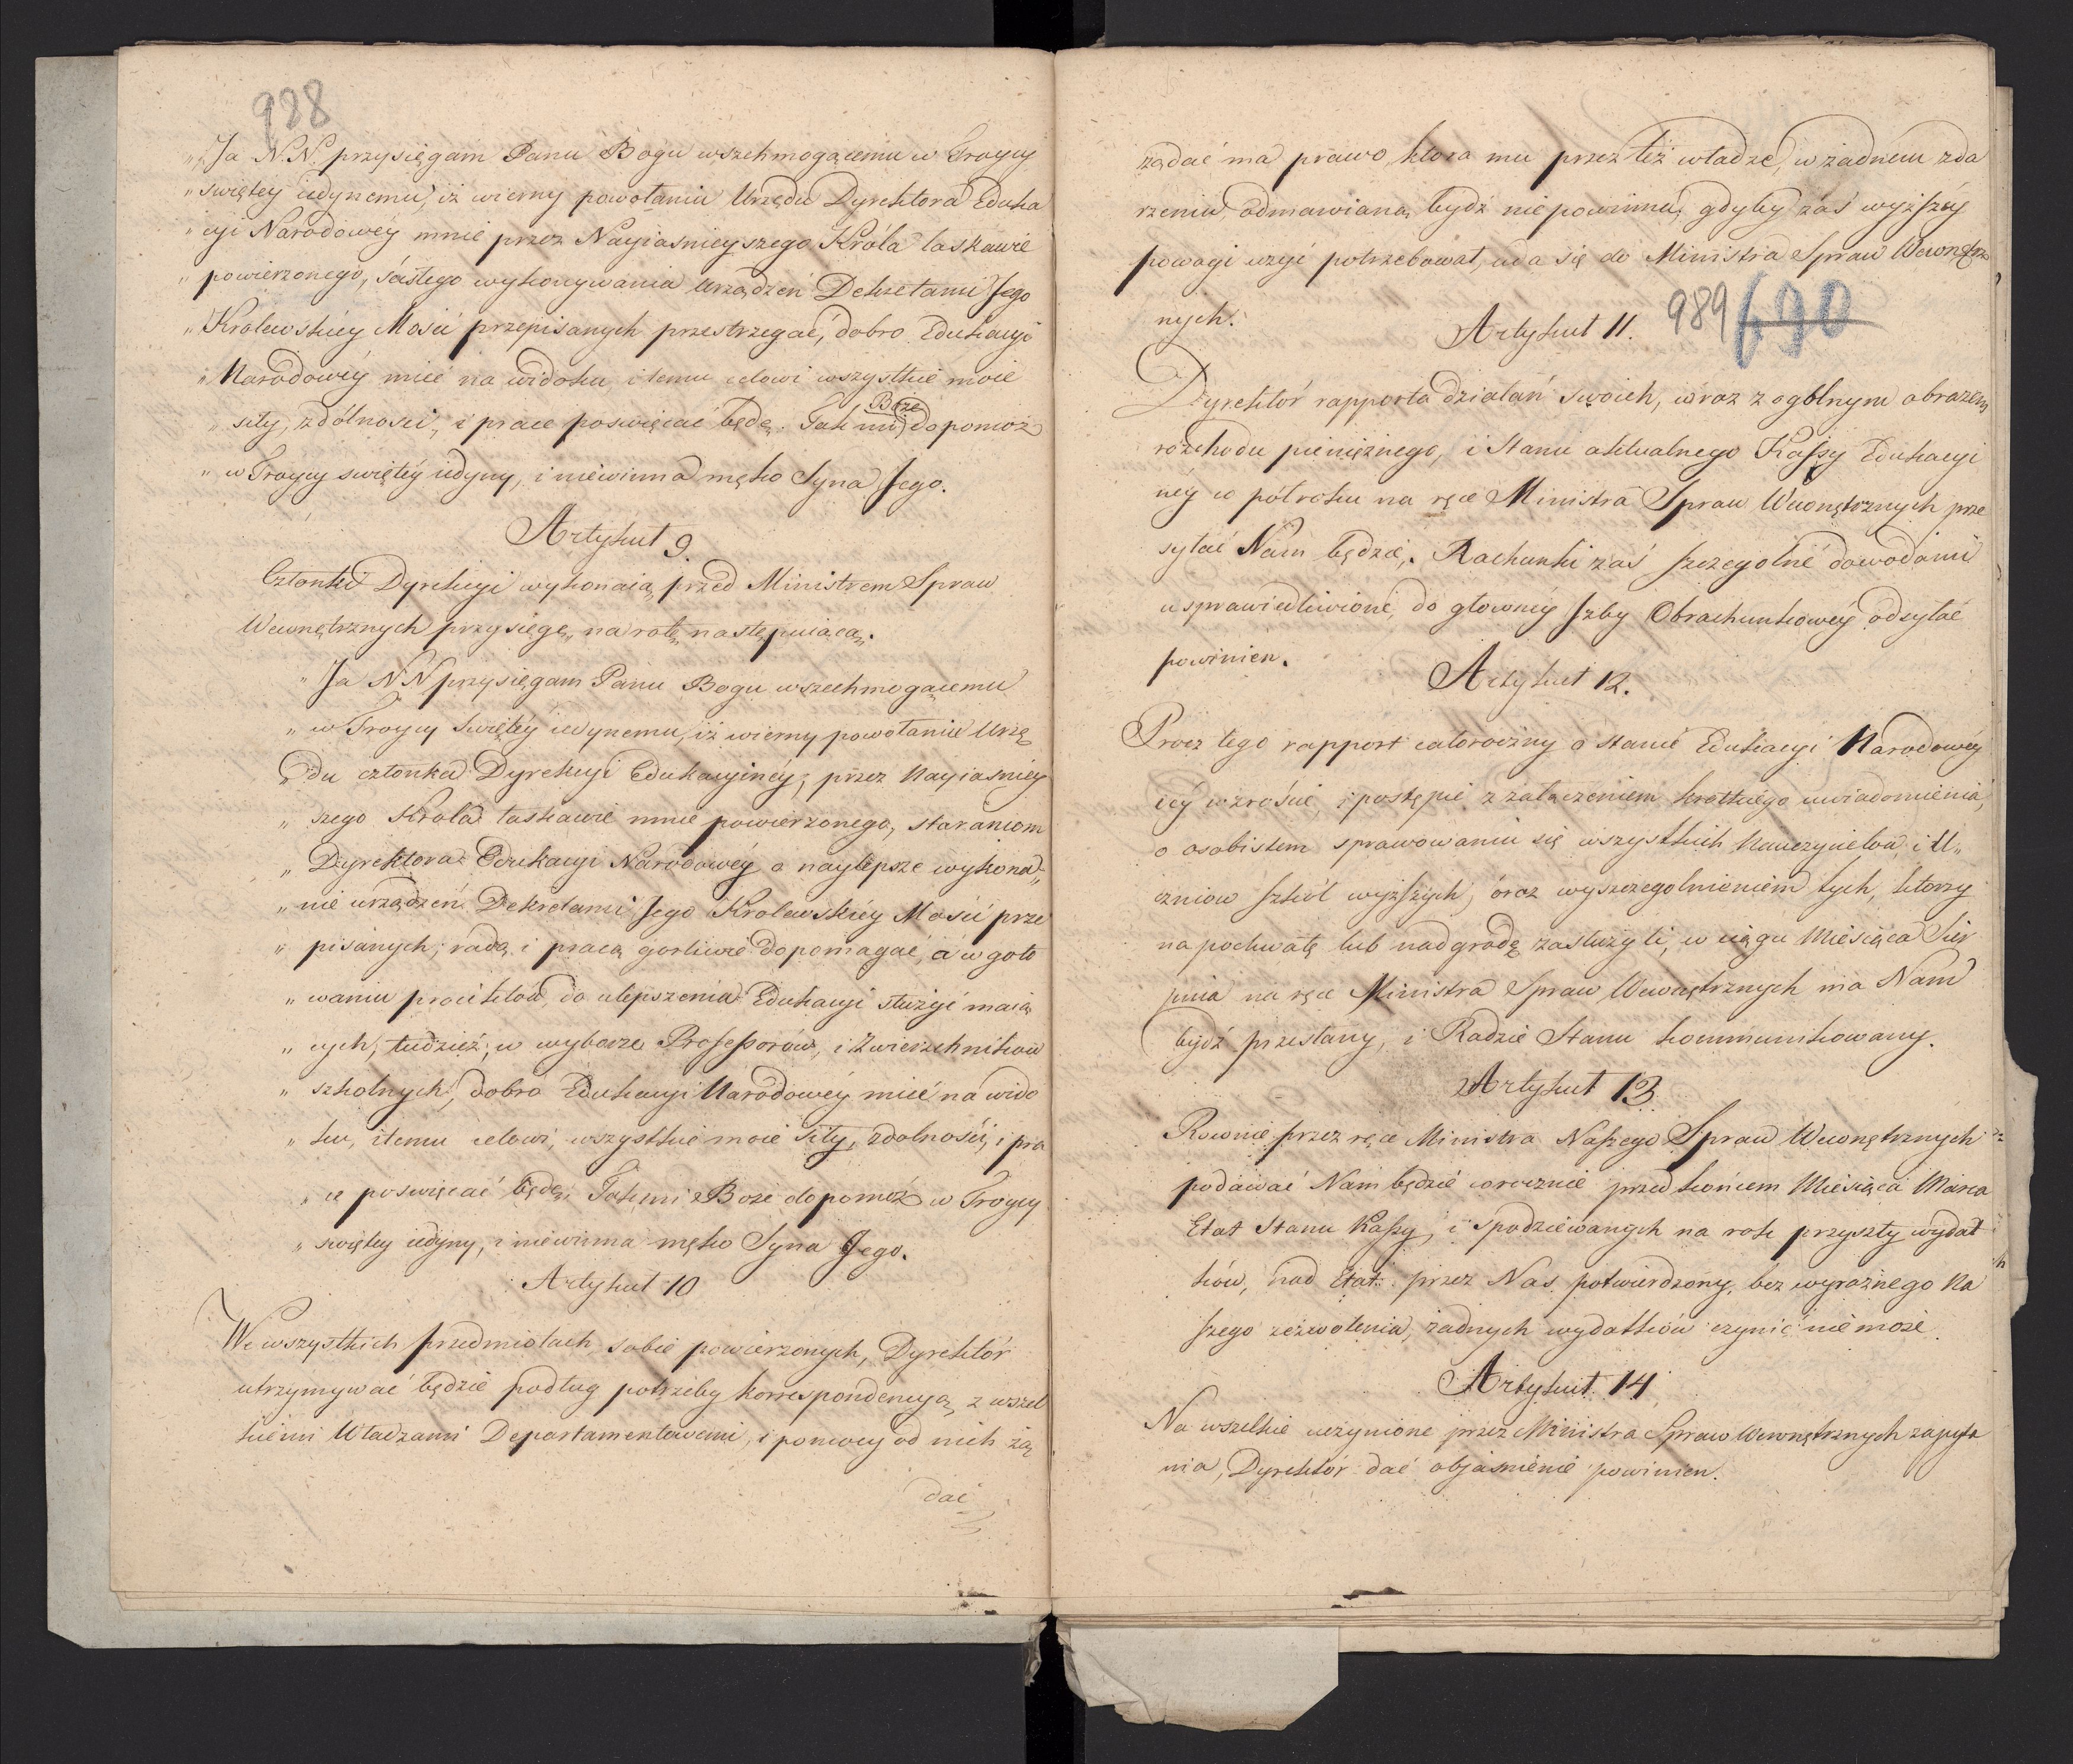 988
„Ja N.N. przysięgam Panu Bogu wszechmogącemu w Troycy
„swiętey iedynemu, iż wierny powołaniu Urzędu Dyrektora Eduka
„cyi Narodowéy mnie przez Nayiasnieyszego Króla łaskawie
„powierzonego, ścisłego wykonywania urządzeń Dekretami Jego
„Krolewskiéy Mości przepisanych przestrzegać, dobro Edukacyi
„Narodowéy mieć na widoku, i temu celowi wszystkie moie
„siły, zdólności, i prace poswięcać będę. Tak mi Boże dopomoż
„w Troycy swiętéy iedyny, i niewinna męko Syna Jego.
Artykuł 9.
Członki Dyrekcyi wykonaią przed Ministrem Spraw
Wewnętrznych przysięgę, na rotę następuiącą.
„Ja NN przysięgam Panu Bogu wszechmogącemu
„w Troycy Swiętéy iedynemu, iż wierny powołaniu Urzę
„du członka Dyrekcyi Edukacyinéy, przez Nayiasniéy
„szego Krola łaskawie mnie powierzonego, staraniom
„Dyrektora Edukacyi Narodowéy o naylepsze wykona„
„nie urządzeń Dekretami Jego Krolewskiéy Mości prze
„pisanych, radą i pracą gorliwie dopomagać, a w goto
„waniu proiektow, do ulepszenia Edukacyi służyć maią
„cych, tudzież, w wyborze Professorów, i Zwierzchnikow
„szkolnych, dobro Edukacyi Narodowéy mieć na wido
„ku, i temu celowi, wszystkie moie siły, zdolności, i pra
„ce poswięcać będę. Tak mi Boże dopomóż w Troycy
„swiętey iedyny, i niewinna męko Syna Jego.
Artykuł 10
We wszystkich przedmiotach sobie powierzonych, Dyrektór
utrzymywać będzie podług potrzeby korrespondencyą z wszel
kiemi Władzami Departamentowemi, i pomocy od nich żą
dać
żądać ma prawo, ktora mu przez też władze, w żadnem zda
rzeniu, odmawianą bydź niepowinna, gdyby zaś wyższéy
powagi użyć potrzebował, uda się do Ministra Spraw Wewnętrz
nych.
989 690
Artykuł 11.
Dyrektór rapporta działań swoich, wraz z ogólnym obrazem
rozchodu pieniężnego, i Stanu aktualnego Kassy Edukacyi
néy co półroku na ręce Ministra Spraw Wewnętrznych prze
syłać Nam będzie. Rachunki zaś szczegolne dowodami
usprawiedliwione, do głowney Izby Obrachunkowéy odsyłać
powinien.
Artykuł 12.
Procz tego rapport całoroczny o stanie Edukacyi Narodowéy
iéy wzroście, i postępie, z załączeniem krotkiego uwiadomienia,
o osobistem sprawowaniu się wszystkich Nauczycielow, i U„
czniow szkół wyższych, oraz wyszczegolnieniem tych, ktorzy
na pochwałę lub nadgrodę zasłużyli, w ciągu Miesiąca Sier
pnia na ręce Ministra Spraw Wewnętrznych ma Nam
bydź przesłany, i Radzie Stanu kommunikowany.
Artykuł 13
Rownie przez ręce Ministra Naszego Spraw Wewnętrznych
podawać Nam będzie corocznie przed końcem Miesiąca Marca
Etat Stanu Kassy, i spodziewanych na rok przyszły wydat
ków, nad Etat przez Nas potwierdzony, bez wyraźnego Na
szego zezwolenia, żadnych wydatków czynić nie może.
Artykuł 14
Na wszelkie uczynione przez Ministra Spraw Wewnętrznych zapyta
nia, Dyrektór dać objasnienie powinien.